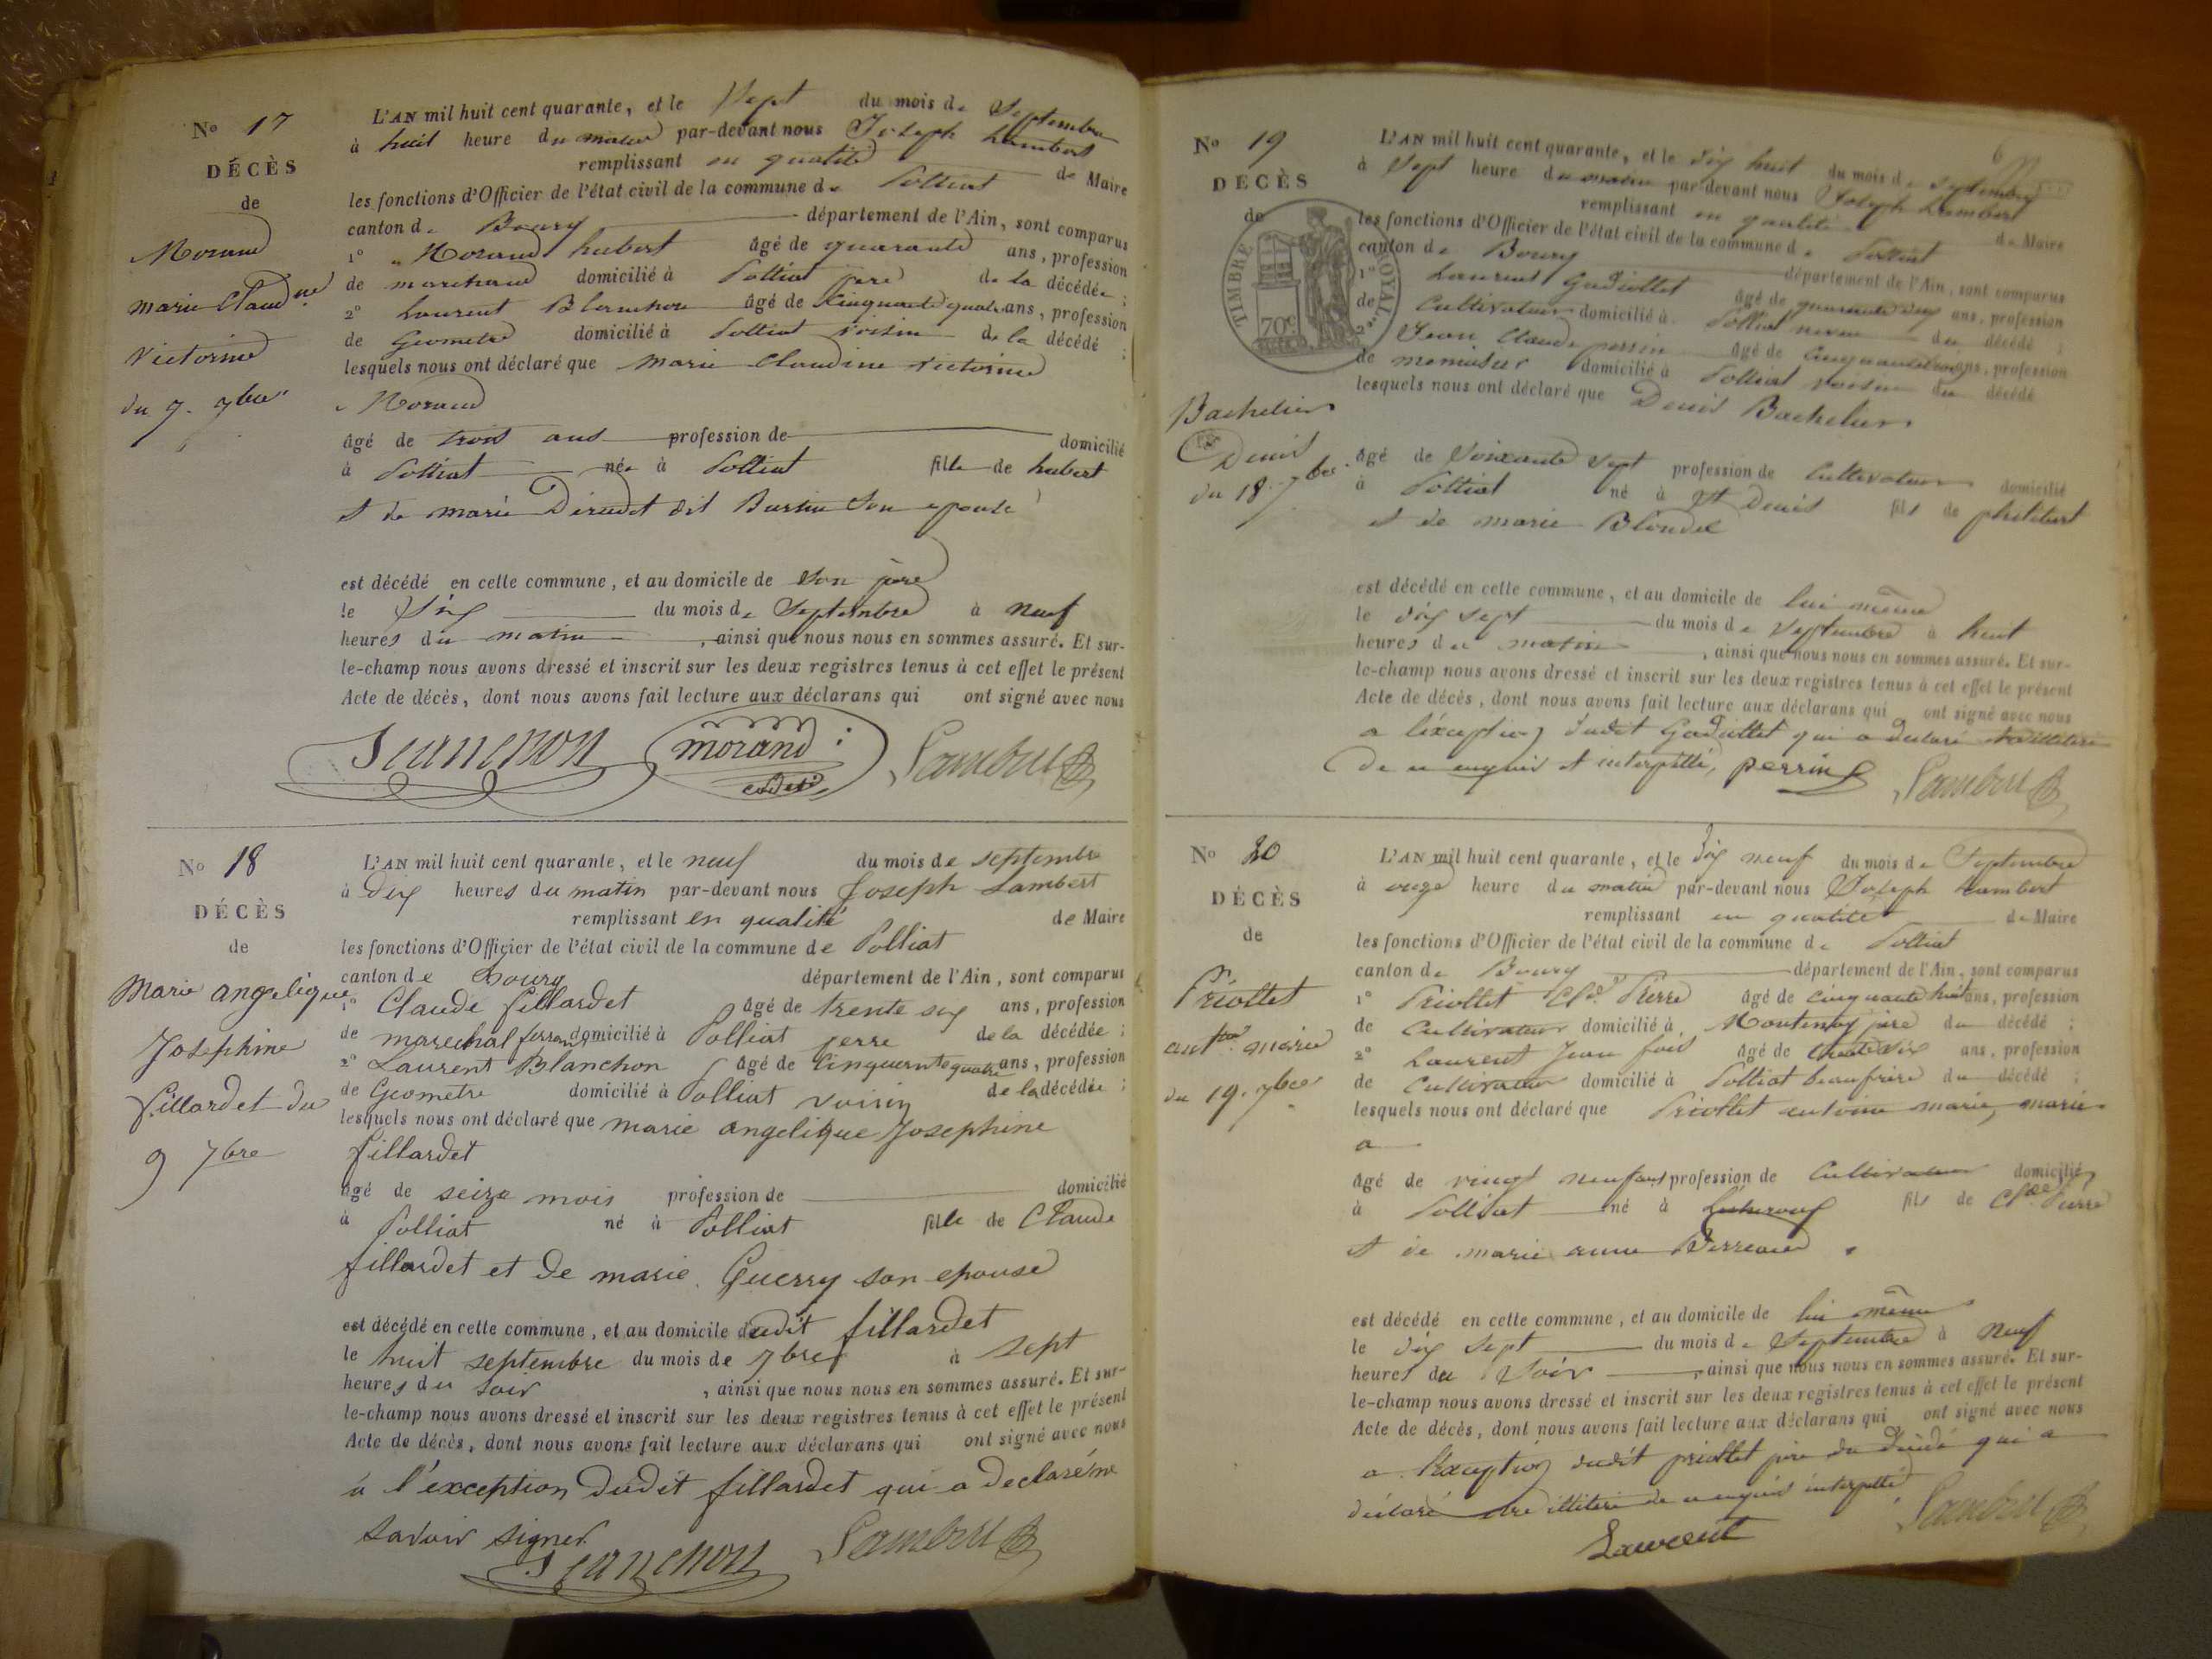 N.o 17
DÉCÈS
de
Morand
marie Claudine
victorine
du 7. 7bre
L'AN mil huit cent quarante, et le Sept du mois de Septembre
à huit heure du matin par-devant nous Joseph Lambert
remplissant en qualité de Maire
les fonctions d'Officier de l'état civil de la commune de Polliat
canton de Bourg département de l'Ain, sont comparus
1° Morand hubert âgé de quarante ans, profession
de marchand domicilié à Polliat père de la décédée ;
2° Laurent Blanchon âgé de Cinquante quatre ans, profession
de Geometre domicilié à Polliat voisin de la décédé ;
lesquels nous ont déclaré que marie Claudine victorine
Morand
âgé de trois ans profession de domicilié
à Polliat née à Polliat fille de hubert
et de marie dit son epouse
est décédé en cette commune, et au domicile de Son père
le Six du mois de Septembre à neuf
heures du matin , ainsi que nous nous en sommes assuré. Et sur-
le-champ nous avons dressé et inscrit sur les deux registres tenus à cet effet le présent
Acte de décès, dont nous avons fait lecture aux déclarans qui ont signé avec nous
Blanchon morand Lambert
N.o 18
DÉCÈS
de
Marie angelique
Josephine
fillardet du
9 7bre
L'AN mil huit cent quarante, et le neuf du mois de septembre
à Dix heures du matin par-devant nous Joseph Lambert
remplissant en qualité de Maire
les fonctions d'Officier de l'état civil de la commune de Polliat
canton de Bourg département de l'Ain, sont comparus
1° Claude fillardet âgé de trente six ans, profession
de marechal ferrant domicilié à Polliat perre de la décédée ;
2° Laurent Blanchon âgé de Cinquente quatre ans, profession
de Geometre domicilié à Polliat voisin de la décédée ;
lesquels nous ont déclaré que marie angelique Josephine
fillardet
âgé de seize mois profession de domicilié
à Polliat né à Polliat fille de Claude
fillardet et de marie Guerry son epouse
est décédé en cette commune, et au domicile dudit fillardet
le huit septembre du mois de 7bre à sept
heures du soir , ainsi que nous nous en sommes assuré. Et sur-
le-champ nous avons dressé et inscrit sur les deux registres tenus à cet effet le présent
Acte de décès, dont nous avons fait lecture aux déclarans qui ont signé avec nous
à l'exception dudit fillardet qui a declaré ne
savoir signer
Blanchon Lambert
N.o 19
DÉCÈS
de
TIMBRE ROYAL
70c
Bachelier
Denis
du 18. 7bre
L'AN mil huit cent quarante, et le dix huit du mois de Septembre
à Sept heure du matin par-devant nous Joseph Lambert
remplissant en qualité de Maire
les fonctions d'Officier de l'état civil de la commune de Polliat
canton de Bourg département de l'Ain, sont comparus
1° Laurent Gadiollet âgé de quarante ans, profession
de Cultivateur domicilié à Polliat neveu du décédé ;
2° Jean Claude perrin âgé de Cinquante trois ans, profession
de menuisier domicilié à Polliat voisin du décédé
lesquels nous ont déclaré que Denis Bachelier
âgé de Soixante Sept profession de Cultivateur domicilié
à Polliat né à St Denis fils de philibert
et de marie Blondel
est décédé en cette commune, et au domicile de lui même
le dix sept du mois de Septembre à huit
heures du matin , ainsi que nous nous en sommes assuré. Et sur-
le-champ nous avons dressé et inscrit sur les deux registres tenus à cet effet le présent
Acte de décès, dont nous avons fait lecture aux déclarans qui ont signé avec nous
a l'éxception dudit Gadiollet qui a declaré
de ce enquis et interpellé, perrin Lambert
N.o 20
DÉCÈS
de
Priollet
antne marie
du 19. 7bre
L'AN mil huit cent quarante, et le dix neuf du mois de Septembre
à onze heure du matin par-devant nous Joseph Lambert
remplissant en qualité de Maire
les fonctions d'Officier de l'état civil de la commune de Polliat
canton de Bourg département de l'Ain, sont comparus
1° Priollet Cde Pierre âgé de cinquante huit ans, profession
de Cultivateur domicilié à Montenay père du décédé ;
2° Laurent Jean fois âgé de trente six ans, profession
de Cultivateur domicilié à Polliat beaufrère du décédé ;
lesquels nous ont déclaré que Priollet antoine marie, marié
a
âgé de vingt neuf ans profession de Cultivateur domicilié
à Polliat né à fils de Cde Pierre
et de marie anne
est décédé en cette commune, et au domicile de lui même
le dix sept du mois de Septembre à neuf
heures du Soir , ainsi que nous nous en sommes assuré. Et sur-
le-champ nous avons dressé et inscrit sur les deux registres tenus à cet effet le présent
Acte de décès, dont nous avons fait lecture aux déclarans qui ont signé avec nous
a l'éxception dudit priollet père du décédé qui a
déclaré être illitéré de ce enquis interpellé
Laurent Lambert